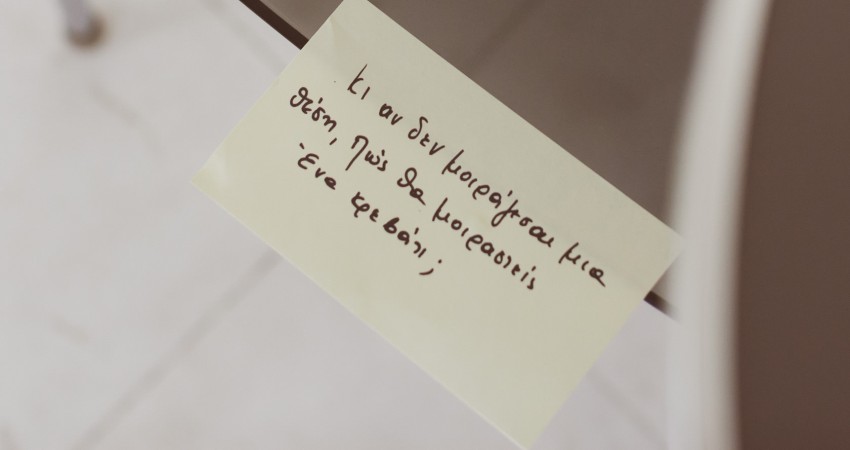 κι αν δεν μοιράζεσαι μια
θέση, πώς θα μοιραστείς
ένα κρεβάτι;